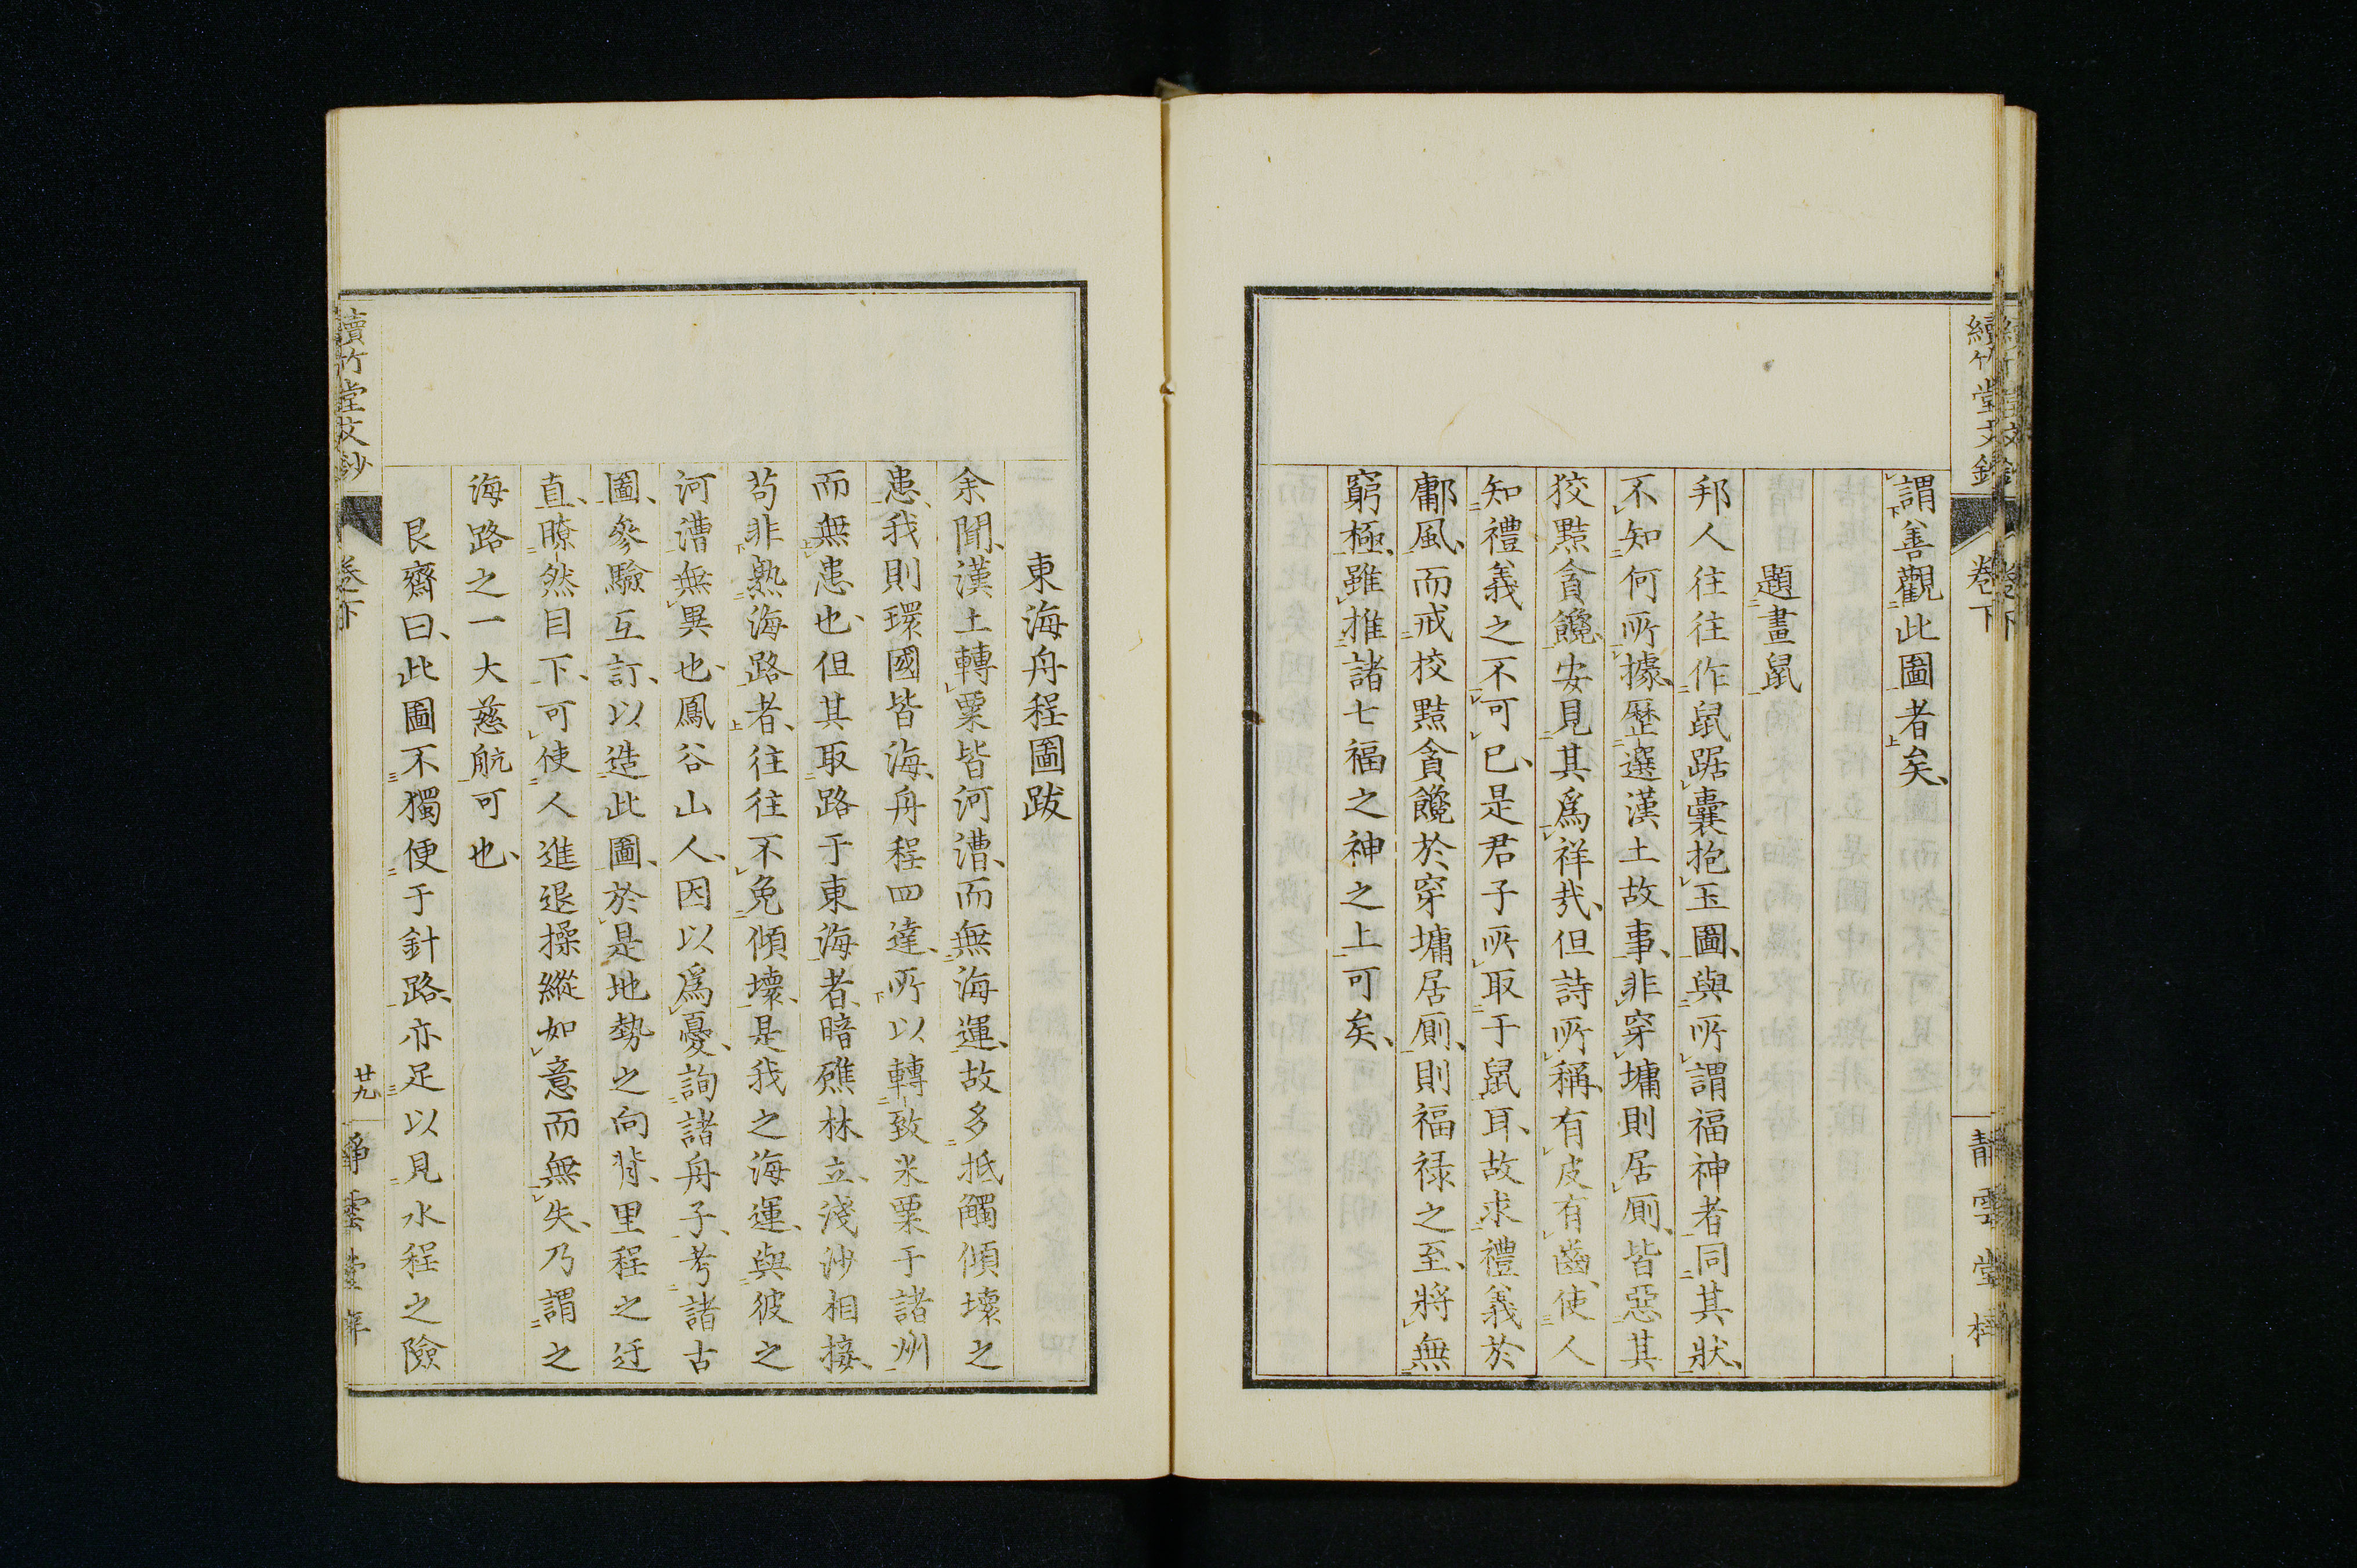 續竹堂文鈔 卷下 靜雲堂梓
謂善觀此圖者矣、
題畫鼠
邦人往往作鼠踞囊抱玉圖、與所謂福神者同其狀、
不知何所據、歷選漢土故事、非穿墉則居厠、皆惡其
狡黠貪饞、安見其爲祥哉、但詩所稱、有皮有齒、使人
知禮義之不可已、是君子所取于鼠耳、故求禮義於
鄘風、而戒狡黠貪饞於穿墉居厠、則福祿之至、將無
窮極、雖推諸七福之神之上可矣、
東海舟程圖跋
余聞、漢土轉粟皆河漕、而無海運、故多抵觸傾壞之
患、我則環國皆海、舟程四達、所以轉致米粟于諸州
而無患也、但其取路于東海者、暗礁林立、淺沙相接、
苟非熟海路者、往往不免傾壞、是我之海運、與彼之
河漕無異也、鳳谷山人、因以爲憂、詢諸舟子、考諸古
圖、參驗互訂、以造此圖、於是地勢之向背、里程之迂
直、瞭然目下、可使人進退操縱如意而無失、乃謂之
海路之一大慈航可也、
艮齋曰、此圖不獨便于針路、亦足以見水程之險
續竹堂文鈔 卷下 廿九 靜雲堂梓